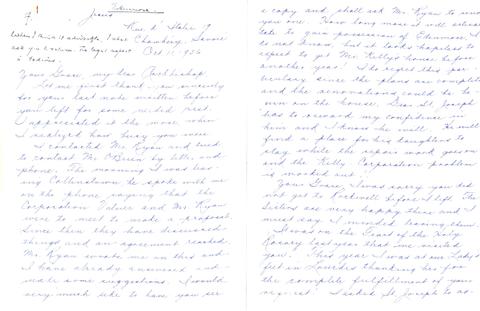 Edenmore
Jesus
Rue d' Italie 7
Chambery, Savoie
Oct 11, 1956
Your Grace, my dear Archbishop,
Let me first thank you sincerely
for your last note written before
you left for some needed rest.
I appreciated it the more when
I realized how busy you were.
I contacted Mr. Ryan and tried
to contact Mr. O'Brien by letter and
phone. The morning I was leav-
ing Collinstown, he spoke with me
on the phone saying that the
Corporation and Mr. Ryan
were to meet to make a proposal.
Since then they have discussed
things and an agreement reached.
Mr. Ryan wrote me on this and
I have already answered and
made some suggestions. I would
very much like to have you see
a copy and shall ask Mr. Ryan to send
you one. How long more it will
take to gain possession of Edenmore, I
do not know, but it looks hopeless to
expect to get Mr. Kelly's house before
another year. I regret this par-
ticularly since the plans are complete
and the renovations could be be-
gun on the house. Dear St. Joseph
has to reward my confidence in
him and I know he will. He will
find a place for his daughters to
stay while the repairs are going on
and the Kelly Corporation problem
is worked out.
Your Grace, I was sorry you did
not get to Rockwell before I left. The
Sisters are very happy there and I
must say I minded leaving them.
I was on the Feast of the Holy
Rosary last year that we visited
you. This year I was at our Lady's
feet in Lourdes thanking her for
the complete fulfillment of your
request. I asked St. Joseph to as-